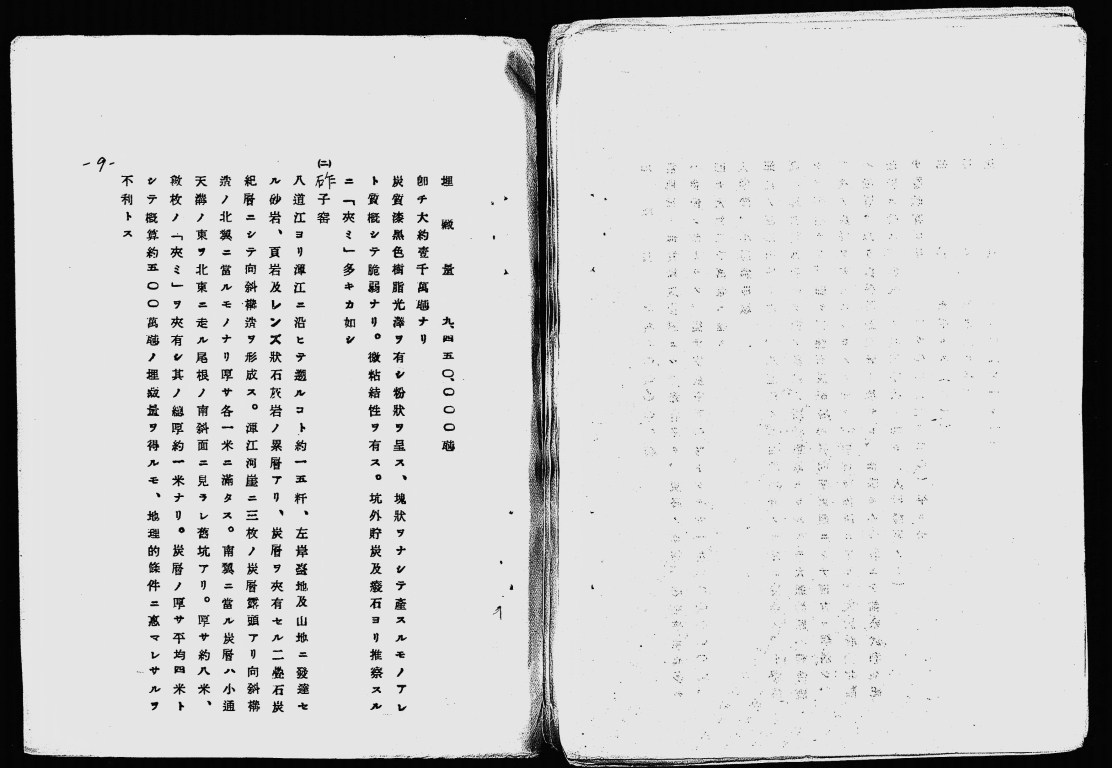 埋藏量 九、四五〇、〇〇〇瓲
卽チ大約壹千萬瓲ナリ
炭質漆黑色樹脂光澤ヲ有シ粉狀ヲ呈ス、塊狀ヲナシテ產スルモノアレ
ト質概シテ脆弱ナリ。微粘結性ヲ有ス。坑外貯炭及癈石ヨリ推察スル
ニ「夾ミ」多キカ如シ
(二)砟子窰
八道江ヨリ渾江ニ沿ヒテ遡ルコト約一五粁、左岸盆地及山地ニ發達セ
ル砂岩、頁岩及レンズ狀石灰岩ノ累層アリ、炭層ヲ夾有セル二疊石炭
紀層ニシテ向斜構造ヲ形成ス。渾江河崖ニ三枚ノ炭層露頭アリ向斜構
造ノ北翼ニ當ルモノナリ厚サ各一米ニ滿タス。南翼ニ當ル炭層ハ小通
天溝ノ東ヲ北東ニ走ル尾根ノ南斜面ニ見ラレ舊坑アリ。厚サ約八米、
數枚ノ「夾ミ」ヲ夾有シ其ノ總厚約一米ナリ。炭層ノ厚サ平均四米ト
シテ概算約五〇〇萬瓲ノ埋藏量ヲ得ルモ、地理的條件ニ惠マレサルヲ
不利トス
-9-